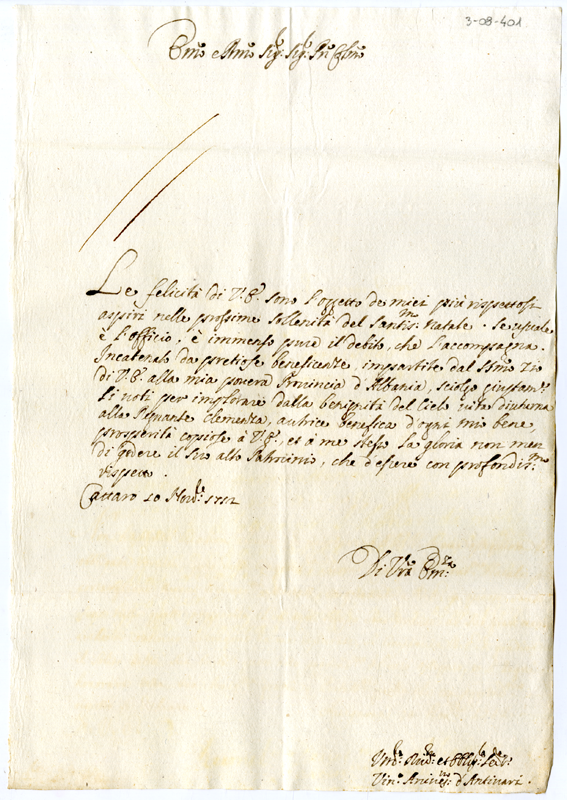 3-08-401
Em.o e Rm.o Sig.r Sig.r Pn̄ Col.mo
Le felicità di V.E. sono l'oggetto de miei più rispettosi
aspiri nelle prossime sollenità del Santis.mo Natale. Se usuale
è l'officio, è immenso pure il debito, che l'accompagna.
Incatenato da pretiose beneficenze, impartite dal S.mo Zio
di V.E. alla mia povera Provincia d'Albania, sciolgo giustam.te
li voti per implorare dalla benignità del Cielo vita diuturna
alla Regnante clemenza, autrice benefica d'ogni mio bene,
prosperità copiose à V.E., et à me stesso la gloria non men
di godere il suo alto Patrocinio, che d'essere con profondis.mo
rispetto.
Cattaro 10 Nov.e 1712
Di V.ra Em.za
Um.o et Obblig.
Vin.o Arciv. d'Antivari.